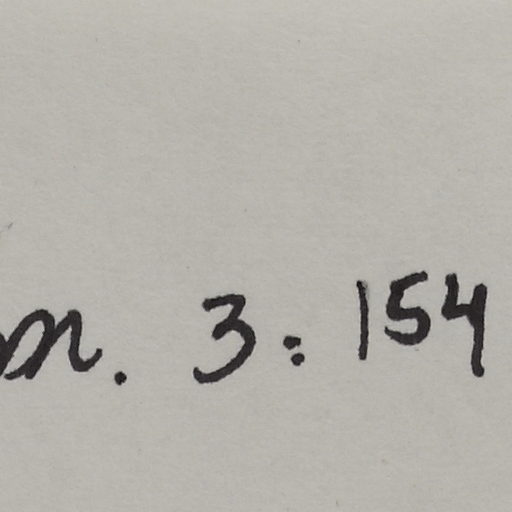 n. 3: 154